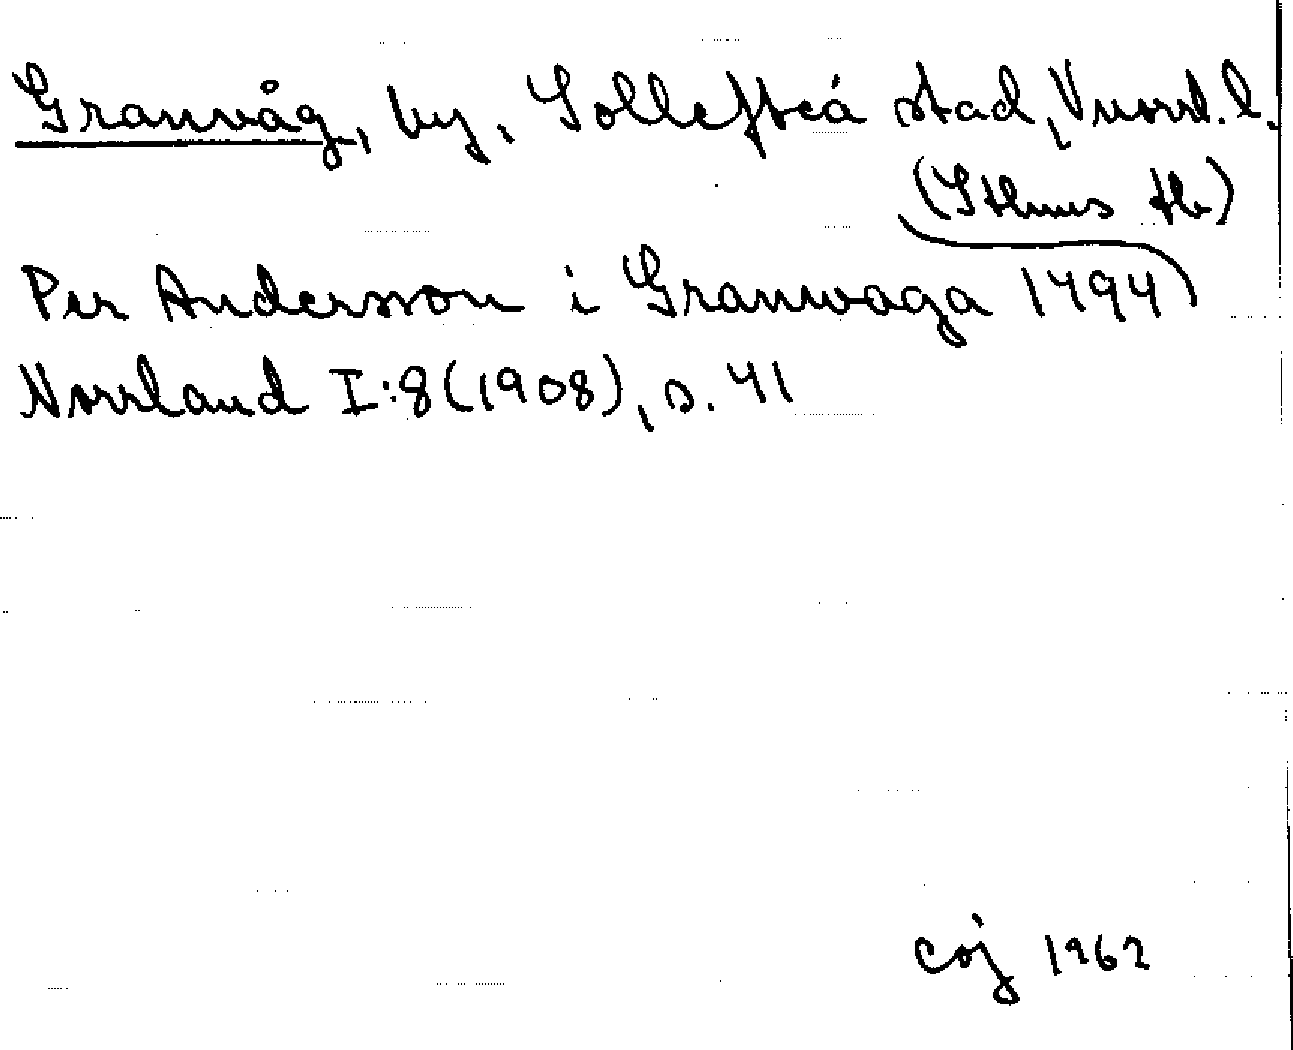 Granvåg, by, Sollefteå stad, Vnorrl. l.
(Sthms tb)
Per Andersson i Granwaga 1494
Norrland I:8 (1908), s. 41
coj 1962